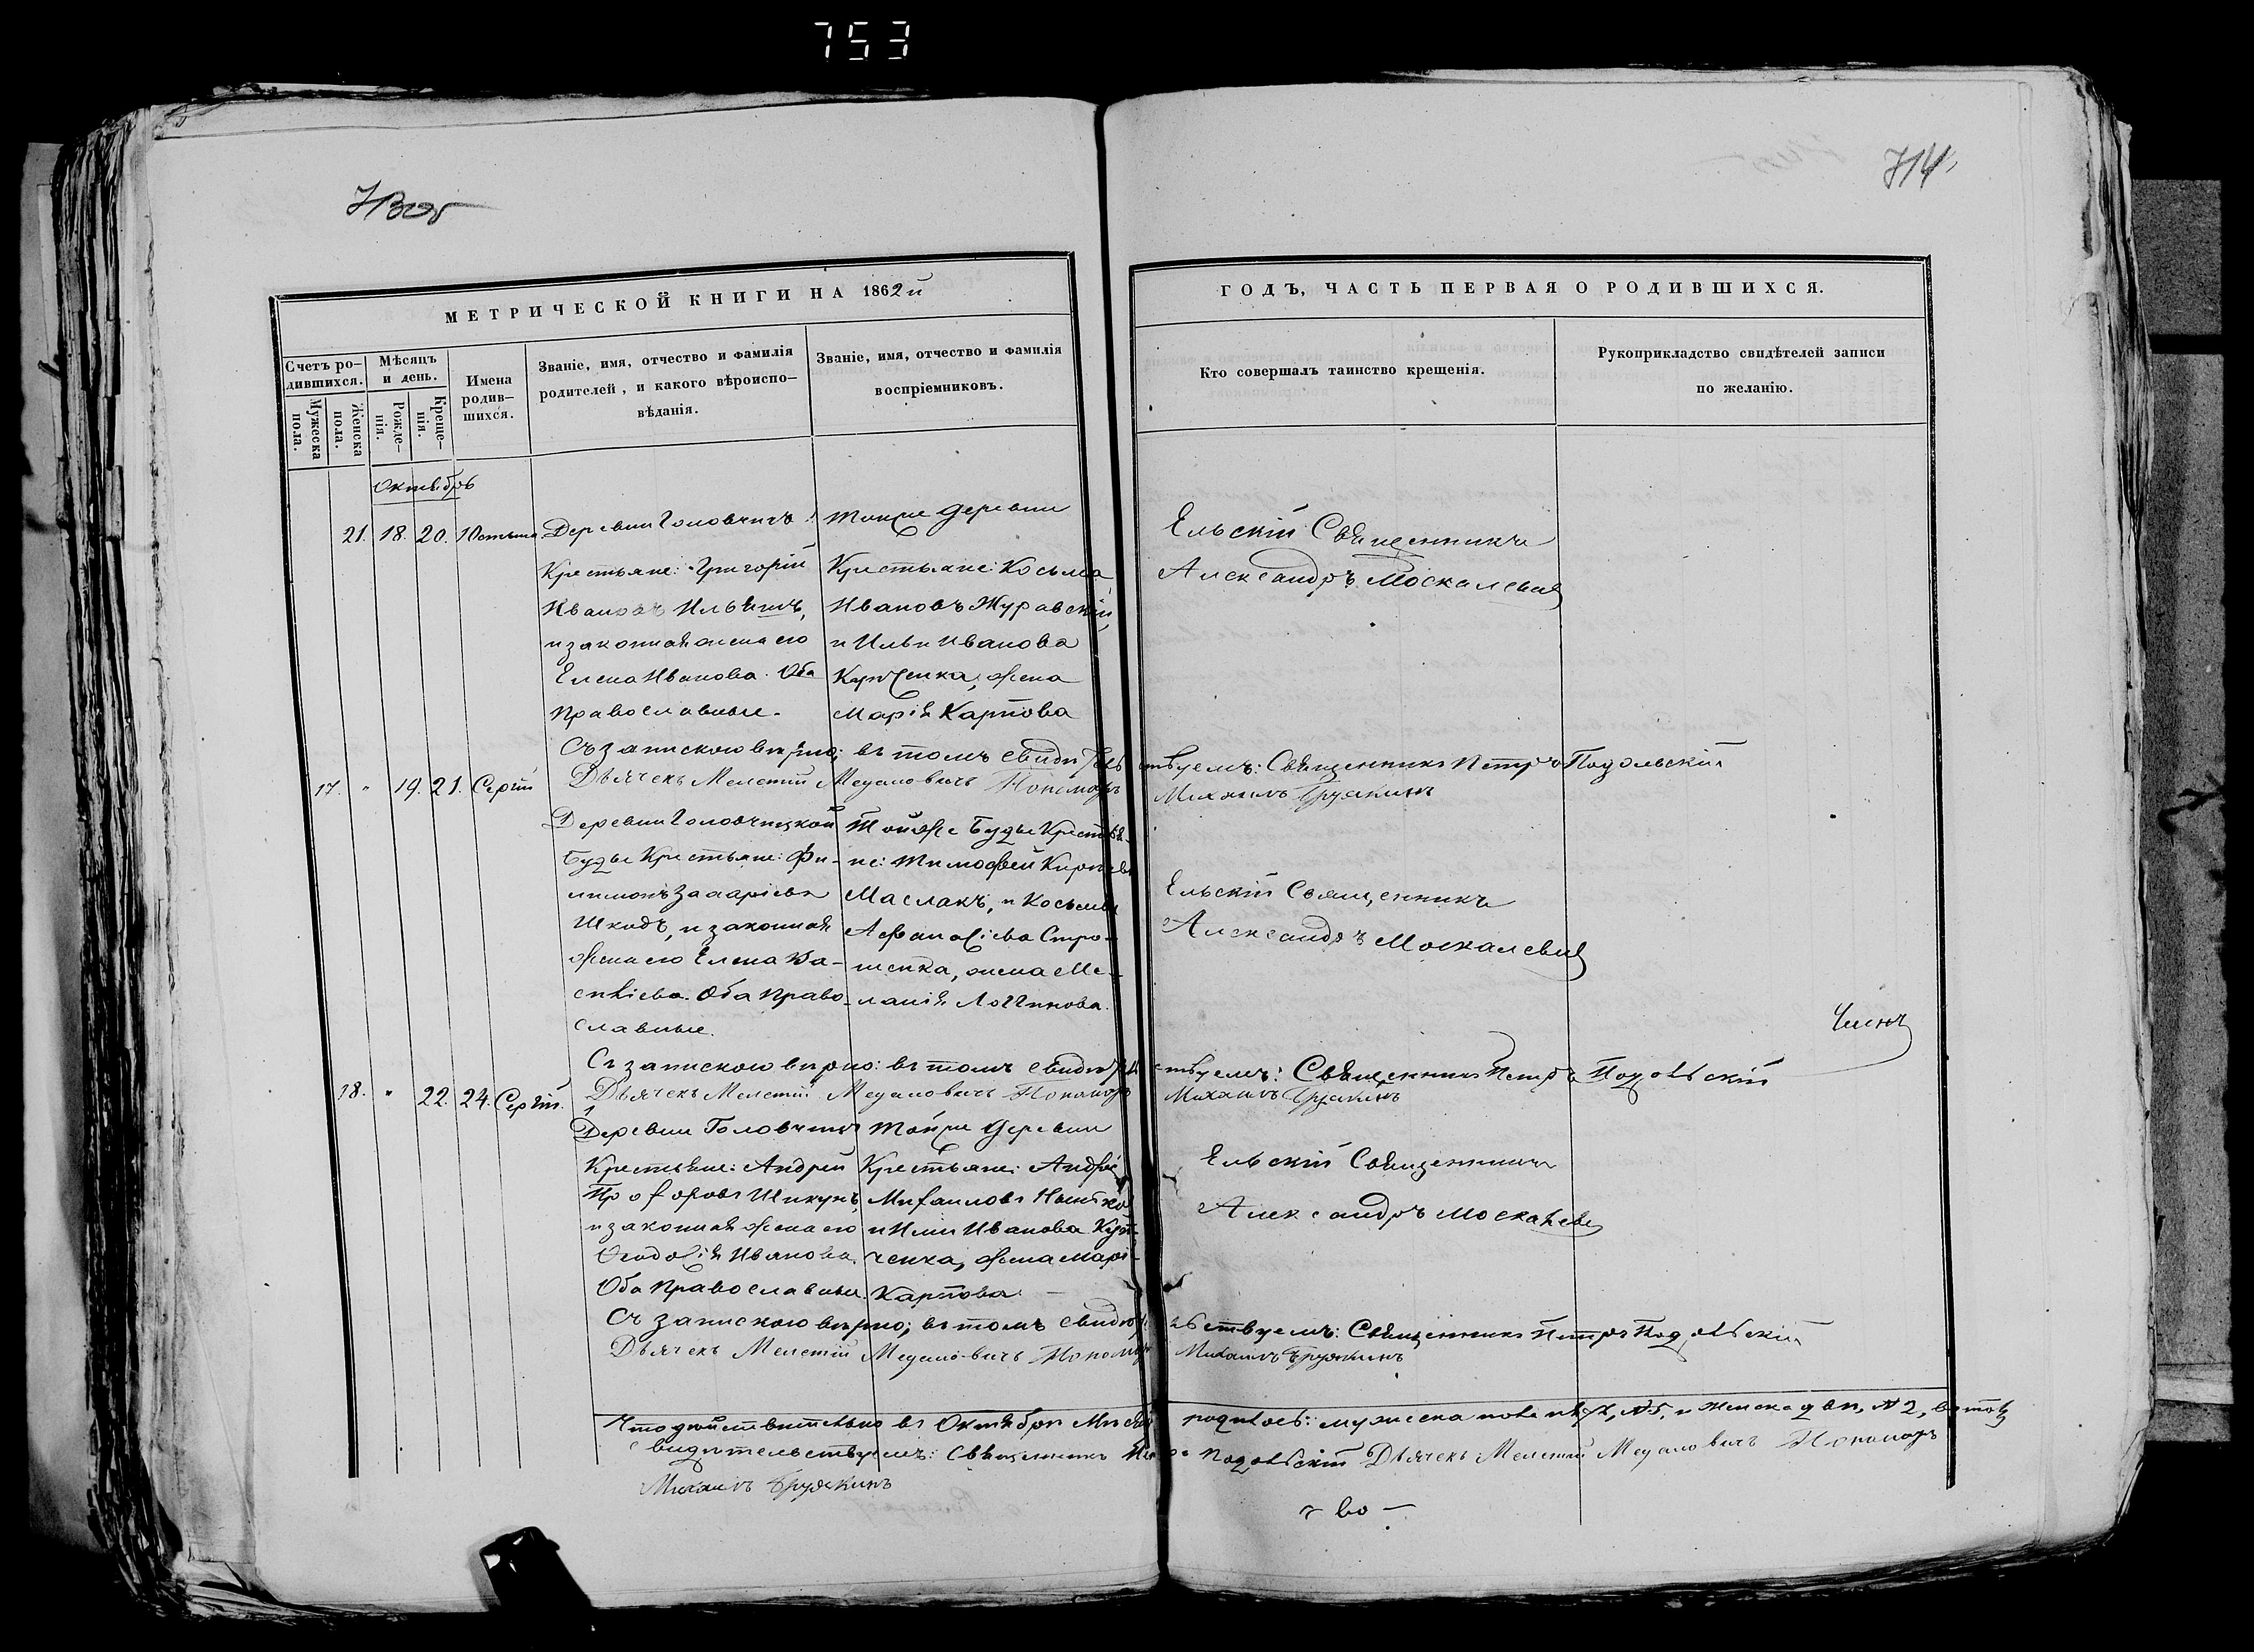 753
714
МЕТРИЧЕСКОЙ КНИГИ НА 1862й
ГОДЪ, ЧАСТЬ ПЕРВАЯ О РОДИВШИХСЯ.
Счетъ ро-
дившихся.
Мужеска
пола.
Женска
пола.
Мѣсяцъ
и день.
Рожде-
нія.
Креще-
нія.
Имена
родив-
шихся.
Званіе, имя, отчество и фамилія
родителей, и какого вѣроиспо-
вѣданія.
Званіе, имя, отчество и фамилія
воспріемниковъ.
Кто совершалъ таинство крещенія.
Рукоприкладство свидѣтелей записи
по желанію.
Октябрь
21. 18. 20. Юстина
Деревни Головчичъ
Крестьяне: Григорій
Ивановъ
и законная жена его
Елена Иванова. Оба
православные.
Тойже деревни
Крестьяне: Косьма
Ивановъ Журавскій,
и Ильи Иванова
Купченка, жена
Марія Карпова
Ельскій Священникъ
Александръ Москалевичъ
Съ запискою вѣрно; въ томъ свидѣтельствуемъ: Священникъ Петръ Подольскій
Дьячекъ Мелетій Пономарь Михаилъ
17. " 19. 21. Сергій
Деревни Головчицкой
Буды Крестьяне: Фи-
лимонъ Захаріевъ
Шкодъ, и законная
жена его Елена Ва-
силіева. Оба Право-
славные.
Тойже Буды Крестья-
не: Тимофей
Маслакъ, и Косьмы
Афанасіева Стро-
женка, жена Ме-
ланія Логгинова.
Ельскій Священникъ
Александръ Москалевичъ
Съ запискою вѣрно: въ томъ свидѣтельствуемъ: Священникъ Петръ Подольскій
Дьячекъ Мелетій Пономарь Михаилъ
18. " 22. 24. Сергій.
Деревни Головчичъ
Крестьяне: Андрей
Прохоровъ Шикунъ,
и законная жена его
Феодосія Иванова.
Оба Православные.
Тойже деревни
Крестьяне: Андрей
Михаиловъ
и Ильи Иванова Куп-
ченка, жена Марія
Карпова.
Ельскій Священникъ
Александръ Москалевичъ
Съ запискою вѣрно; въ томъ свидѣтельствуемъ: Священникъ Петръ Подольскій
Дьячекъ Мелетій Пономарь Михаилъ
Что дѣйствительно въ Октябрѣ Мѣсяцѣ родилось: мужеска пола №5, и женска два, №2, въ томъ
свидѣтельствуемъ: Священникъ Петръ Подольскій Дьячекъ Мелетій Пономарь
Михаилъ